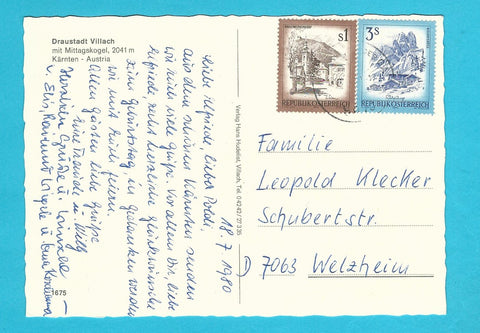 Draustadt Villach
mit Mittagskogel, 2041 m
Kärnten - Austria
18.7.1980
Liebe Hefriede, lieber Poldi,
aus dem schönen Kärnten senden
wir Euch viele Grüße. Vor allem Dir, liebe
Hefriede recht herzliche Glückwünsche
zum Geburtstag in Gedanken werden
wir mit Euch feiern.
Allen Gästen liebe Grüße
Eure Traudl u. Willy
Herzlichen Grüße u.
u.
1675
Verlag Hans Hubeiser, Villach, Tel.
S1
REPUBLIK ÖSTERREICH
3S
REPUBLIK ÖSTERREICH
Familie
Leopold Klecker
Schubertstr.
D 7063 Welzheim